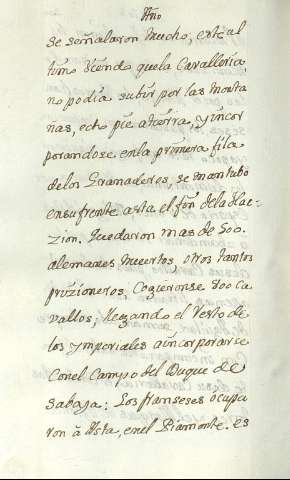 Año
se señalaron mucho, este al
timo viendo que la Cavalleria,
no podia subir por las monta
ñas, echo pie atierra, y incor
porandose enla primera fila
delos Granaderos, se mantubo
ensufrente asta el fin dela Hac-
zion. Quedaron mas de 500.
alemanes muertos, otros tantos
prizioneros, Cogieronse 800 ca
vallos, llegando el Resto de
los ymperiales aincorporarse
Conel Campo del Duque de
Sabaja: Los franseses ocupa
ron à Asta, enel Piamonte. es